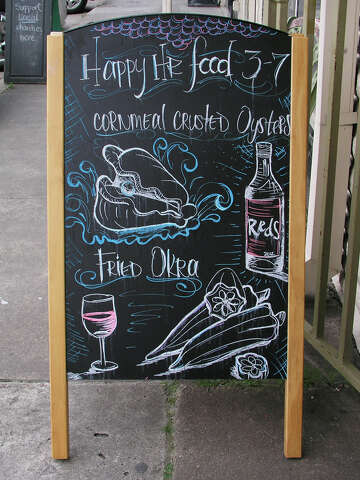 Support
local
charities
here
Happy Hr food 3-7
Cornmeal Crusted Oysters
Reds
Fried Okra